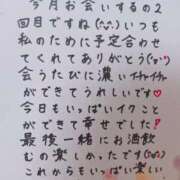 今月お会いするの2
回目ですね(^-^)いつも
私のために予定合わせ
てくれてありがとう(^-^)
会うたびに濃いイチャイチャ
ができてうれしいです♡
今日もいっぱいイクこと
ができて幸せでした!
最後一緒にお酒飲
むの楽しかったです(^-^)
これからもいっぱい楽しい